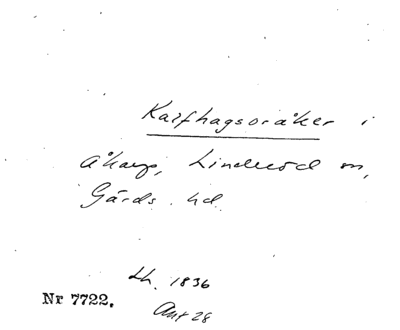 Kalfhagsoråker i
Åkarp, Linderöd sn,
Gärds hd.
Lh. 1836
Nr 7722.
Akt 28